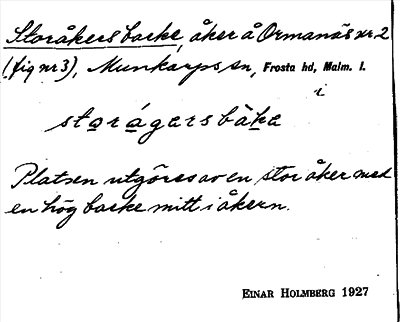 Storåkers backe, åker å Ormanäs nr 2
(fig nr 3), Munkarps sn, Frosta hd, Malm. l.
i
storágarsbàke
Platsen utgöres av en stor åker med
en hög backe mitt i åkern.
EINAR HOLMBERG 1927